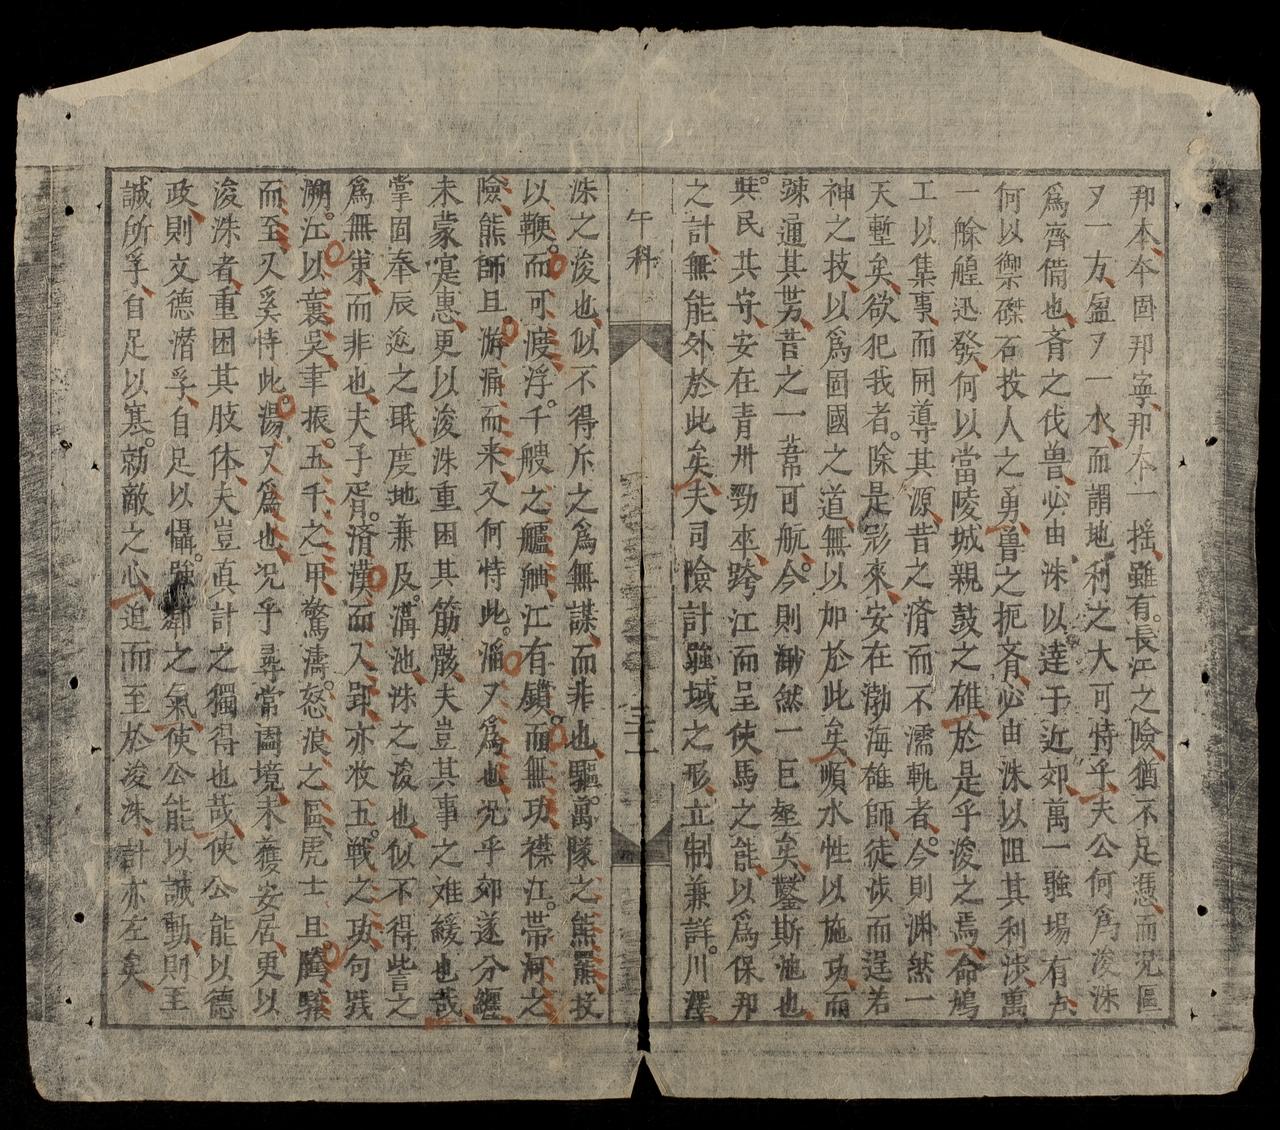 邦本本固邦寧邦本一摇雖有長江之險猶不足憑而况區
又一方盈又一水而謂地利之大可恃乎夫公何爲浚洙
爲齊備也齊之伐魯必由洙以達于近郊萬一疆場有
何以禦磔石投人之勇魯之扼齊必由洙以阻其利涉萬
一艅艎迅發何以當陵城親鼓之雄於是乎浚之焉命鳩
工以集事而開導其源昔之済而不濡軌者今則渊然一
天塹矣欲犯我者除是彩來安在渤海雄師徒涉而逞若
神之技以爲固國之道無以加於此矣順水性以施功而
疎通其势昔之一葦可航今則渺然一巨壑矣鑿斯池也
與民共守安在青卅勁卒跨江而呈使馬之能以爲保邦
之計無能外於此矣夫司險計疆域之形立制兼詳川澤
午科
洙之浚也似不得斥之爲無謀而非也驅萬隊之熊羆投
以鞭而可渡浮千艘之艫舳江有鎖而無功襟江帯河之
險熊師且游涌而来又何恃此湎又爲也况乎郊遂分纒
未蒙寔惠更以浚洙重困其筋骸夫豈其事之难緩也哉
掌固奉辰逾之職度地兼及溝池洙之浚也似不得訾之
爲無策而非也夫子胥済漢而入郢亦收五戦之功句践
溯江以襲吳聿振五千之甲驚濤怒浪之區虎士且隨驟
而至又奚恃此湯又爲也况乎尋常閫境未獲安居更以
浚洙者重困其肢体夫豈真計之獨得也哉使公能以德
政則文德潛孚自足以懾强鄰之氣使公能以誠動則至
誠所孚自足以寒勍敵之心迫而至於浚洙計亦左矣